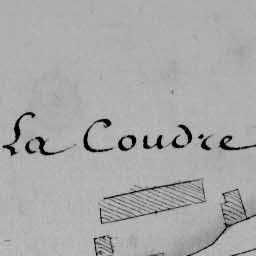 La Coudre